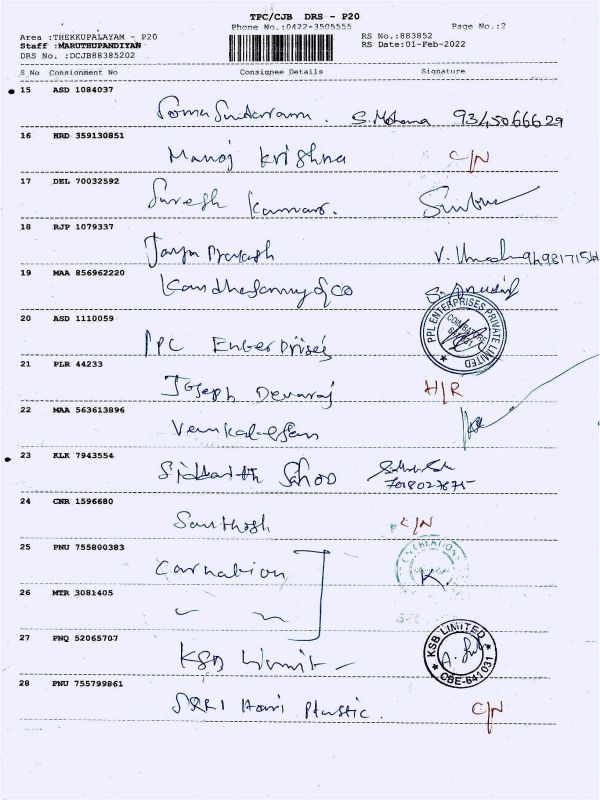 TPC/CJB DRS - P20
Phone No.:0422-3505555
Page No.:2
Area :THEKKUPALAYAM - P20
RS No.:883852
Staff :MARUTHUPANDIYAN
RS Date:01-Feb-2022
DRS No. :DCJB88385202
S No Consignment No Consignee Details Signature
15 ASD 1084037
Soma Sundaram. S. Mohana 9345066629
16 HRD 359130851
Manoj Krishna C/N
17 DEL 70032592
Suresh Kumar.
18 RJP 1079337
Jaya Prakash
19 MAA 856962220
Kandhasamy & Co
20 ASD 1110059
PPC Enterprises
PPL ENTERPRISES PRIVATE LIMITED
COIMBATORE
21 PLR 44233
Joseph Devaraj H/R
22 MAA 563613896
Venkatesan
23 KLK 7943554
Siddharth Sahoo
24 CNR 1596680
Santhosh C/N
25 PNU 755800383
Carnation
K.
26 MTR 3081405
27 PNQ 52065707
KSB Limit
KSB LIMITED
CBE-641 031
28 PNU 755799861
SRRI Hari Plastic. C/N